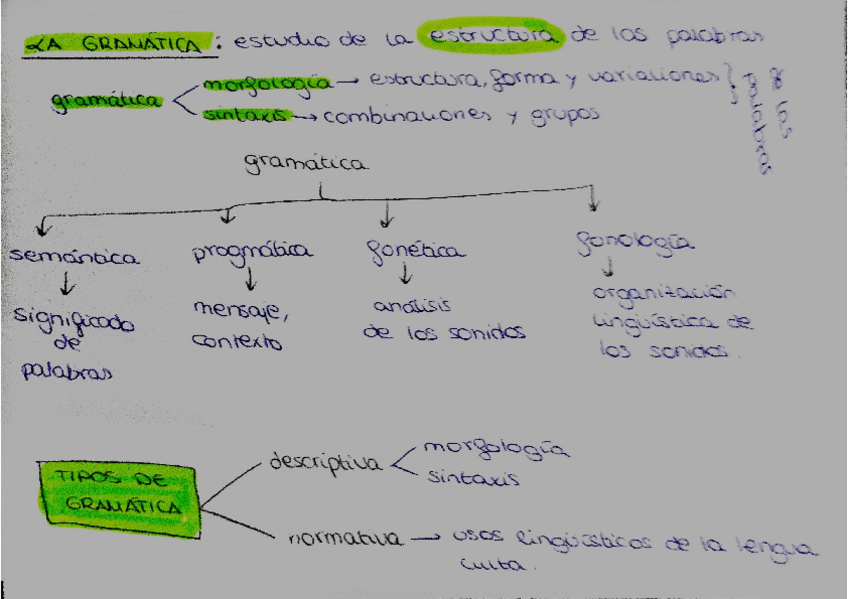 LA GRAMÁTICA: estudio de la estructura de las palabras
gramática
morfología → estructura, forma y variaciones } de las palabras
sintaxis → combinaciones y grupos
gramática
semántica pragmática fonética fonología
significado de palabras
mensaje, contexto
análisis de los sonidos
organización lingüística de los sonidos.
TIPOS DE GRAMÁTICA
descriptiva
morfología
sintaxis
normativa → usos lingüísticos de la lengua
culta.